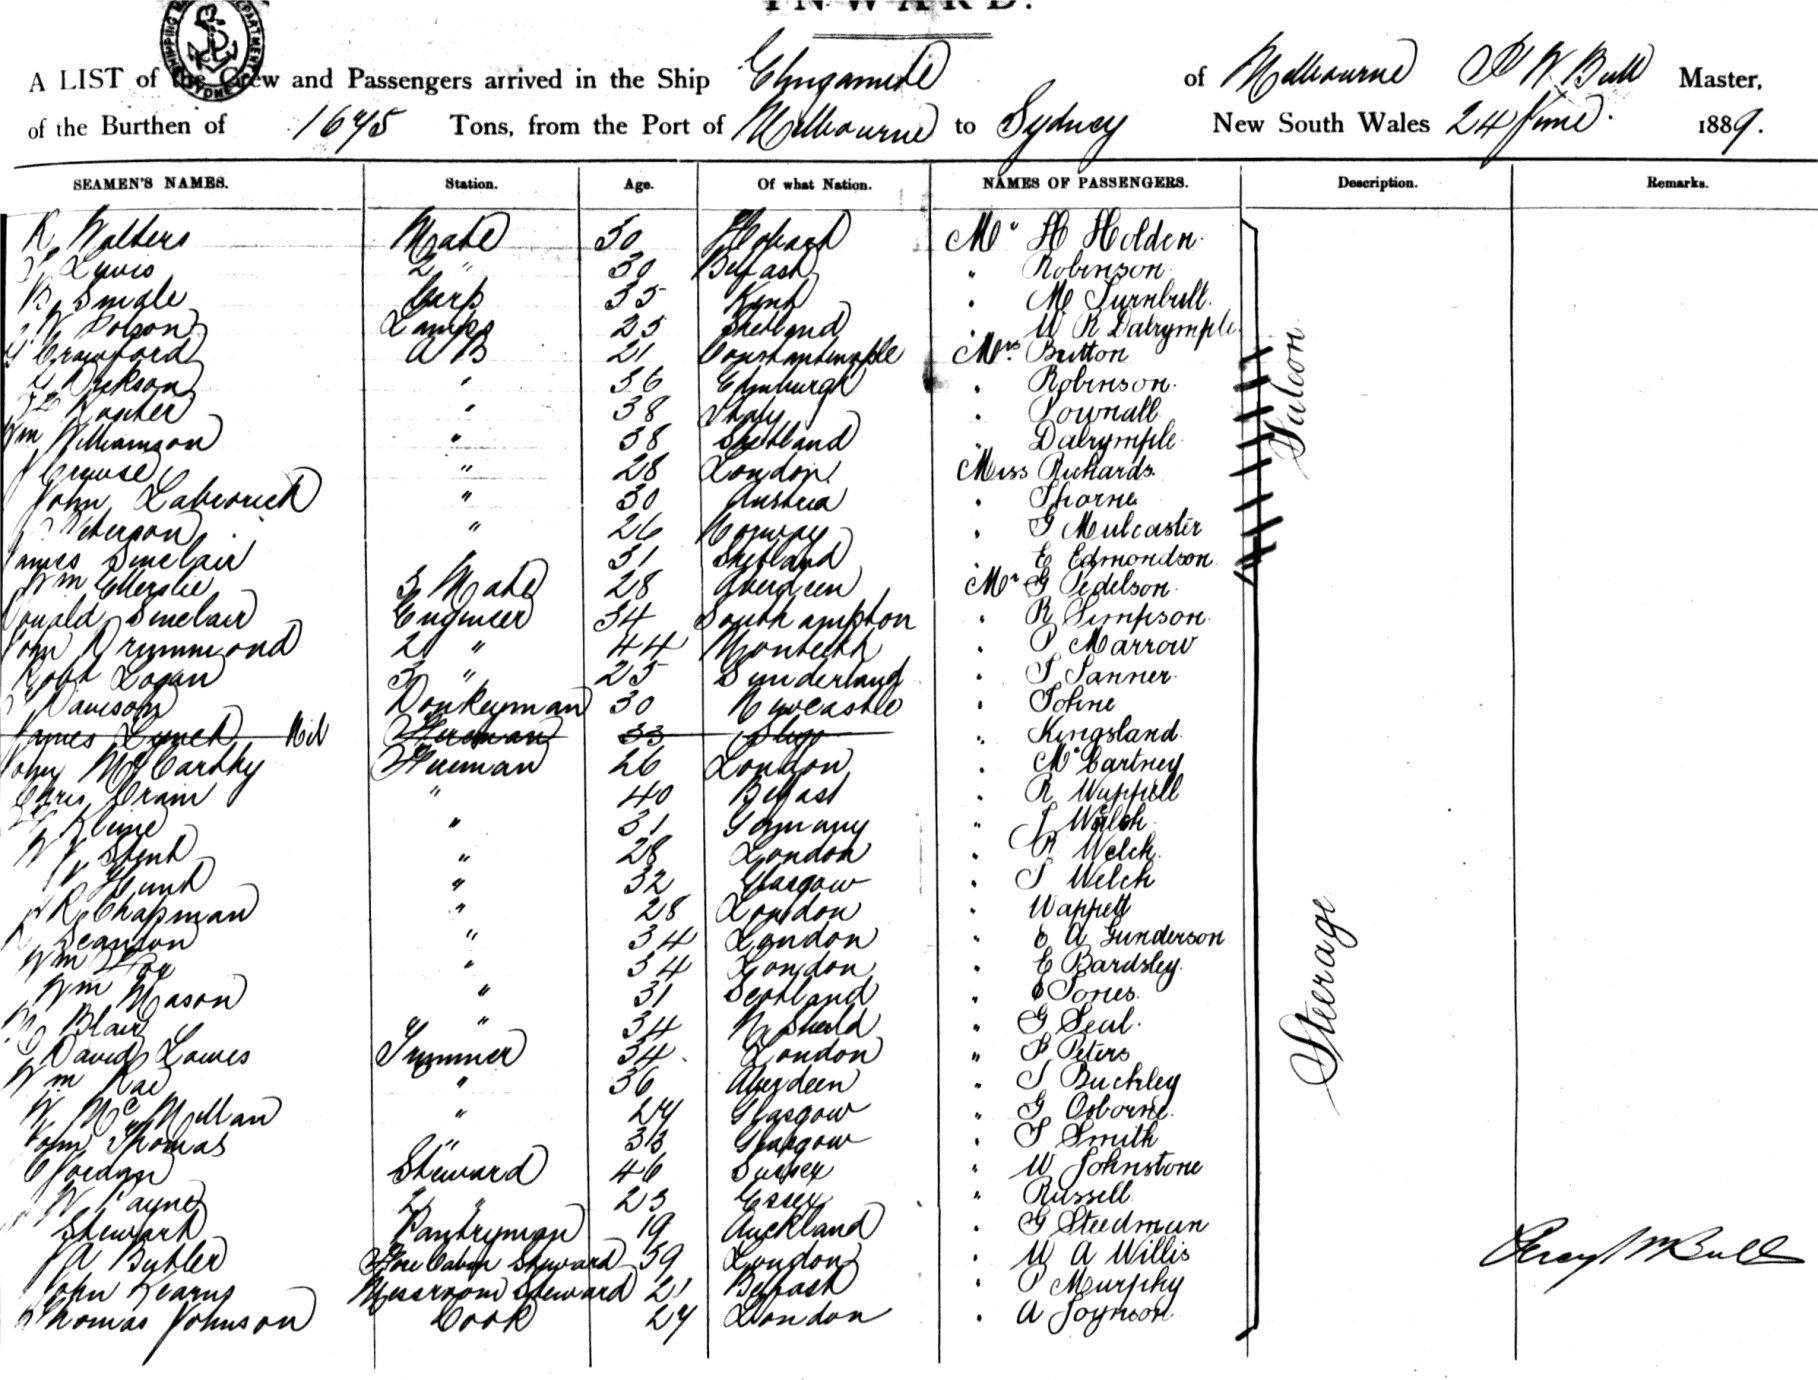 INWARD.
A LIST of the Crew and Passengers arrived in the Ship Elingamite of Melbourne P W Bull Master,
of the Burthen of 1675 Tons, from the Port of Melbourne to Sydney New South Wales 24 June 1889.
SEAMEN'S NAMES. Station. Age. Of what Nation. NAMES OF PASSENGERS. Description. Remarks.
R Walters Mate 30 Hobart Mr H Holden
Lewis 2 " 30 Belfast " Robinson
B Smale Carp 35 Kent " M Turnbull
Polson Lamps 25 Shetland " W R Dalrymple
Crawford A B 21 Constantinople Mrs Britton
Erekson " 36 Edinburgh " Robinson
" 38 Italy " Pownall
Wm Williamson " 38 Shetland " Dalrymple
Crouse " 28 London Miss Richards
John " 30 Austria " Thorne
Peterson " 26 Norway " G Mulcaster
James Sinclair 31 Shetland " E Edmondson
Saloon
Wm Ellerslie 3 Mate 28 Aberdeen Mr G Pedelson
Donald Sinclair Engineer 34 Southampton " R Simpson
John Drummond 2 " 44 Monteith " P Marrow
Robt Logan 3 " 25 Sunderland " T Tanner
Davison Donkeyman 30 Newcastle " Tohne
James Lynch Fireman 33 Sligo " Kingsland
John McCarthy Fireman 26 London " McCartney
Chris Crain " 40 Belfast " R Wappell
Kleine " 31 Germany " J Welch
W Stent " 28 London " R Welch
W Hunt " 32 Glasgow " T Welch
R Chapman " 28 London " Wappett
R Scanlon " 34 London " E A Gunderson
Wm Fox " 34 London " E Bardsley
Wm Mason " 31 Scotland " Jones
Blair " 34 N Shield " G Seal
David Lowes Trimmer 34 London " Peters
Wm Rae " 36 Aberdeen " T Buckley
W McMillan " 24 Glasgow " G Osborne
John Thomas " 33 Glasgow " T Smith
Steerage
C Jordan Steward 46 Sussex " W Johnstone
W Payne 2 " 23 Essex " Russell
Stewart Pantryman 19 Auckland " G Steedman
A Butler Fore Cabin Steward 39 London " W A Willis
John Kearns Messroom Steward 21 Belfast " P Murphy
Thomas Johnson Cook 24 London " A Joynson
Percy W Bull